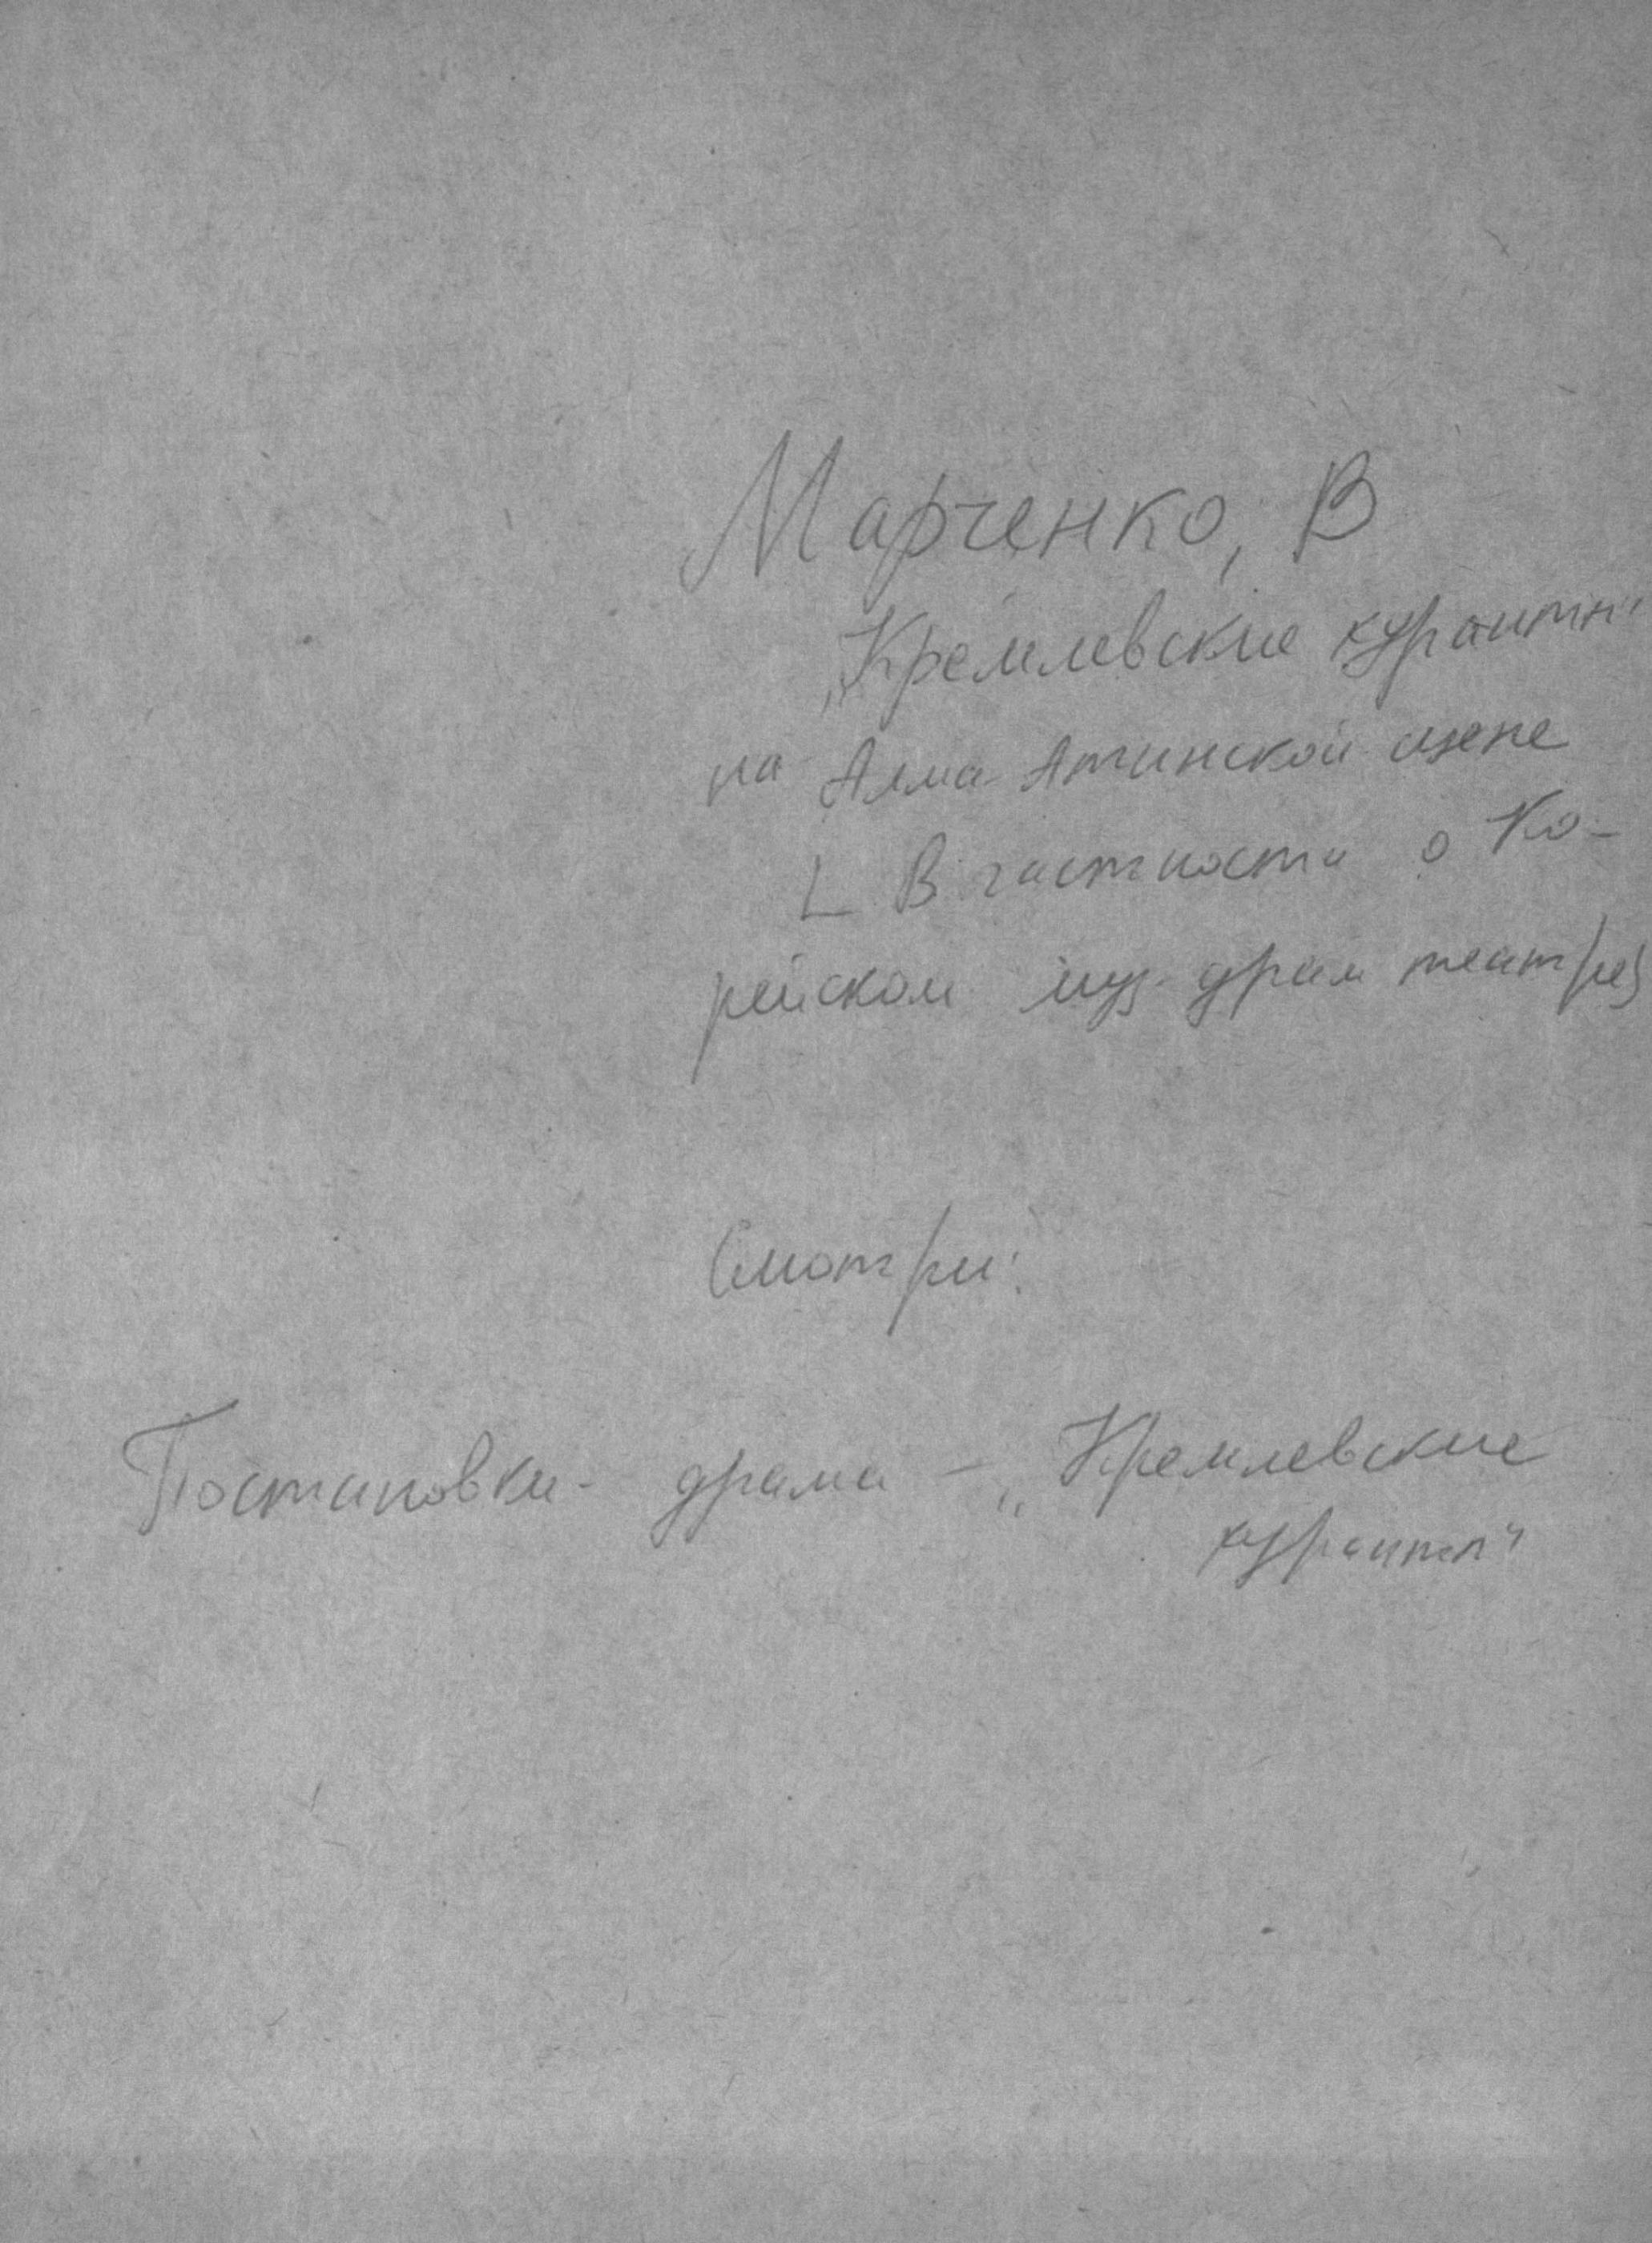 Марченко, В
„Кремлевские куранты"
на Алма-Атинской сцене
[В частности о Ко-
рейском муз. драм театре]
Смотри:
Постановки - драма - „Кремлевские
куранты"